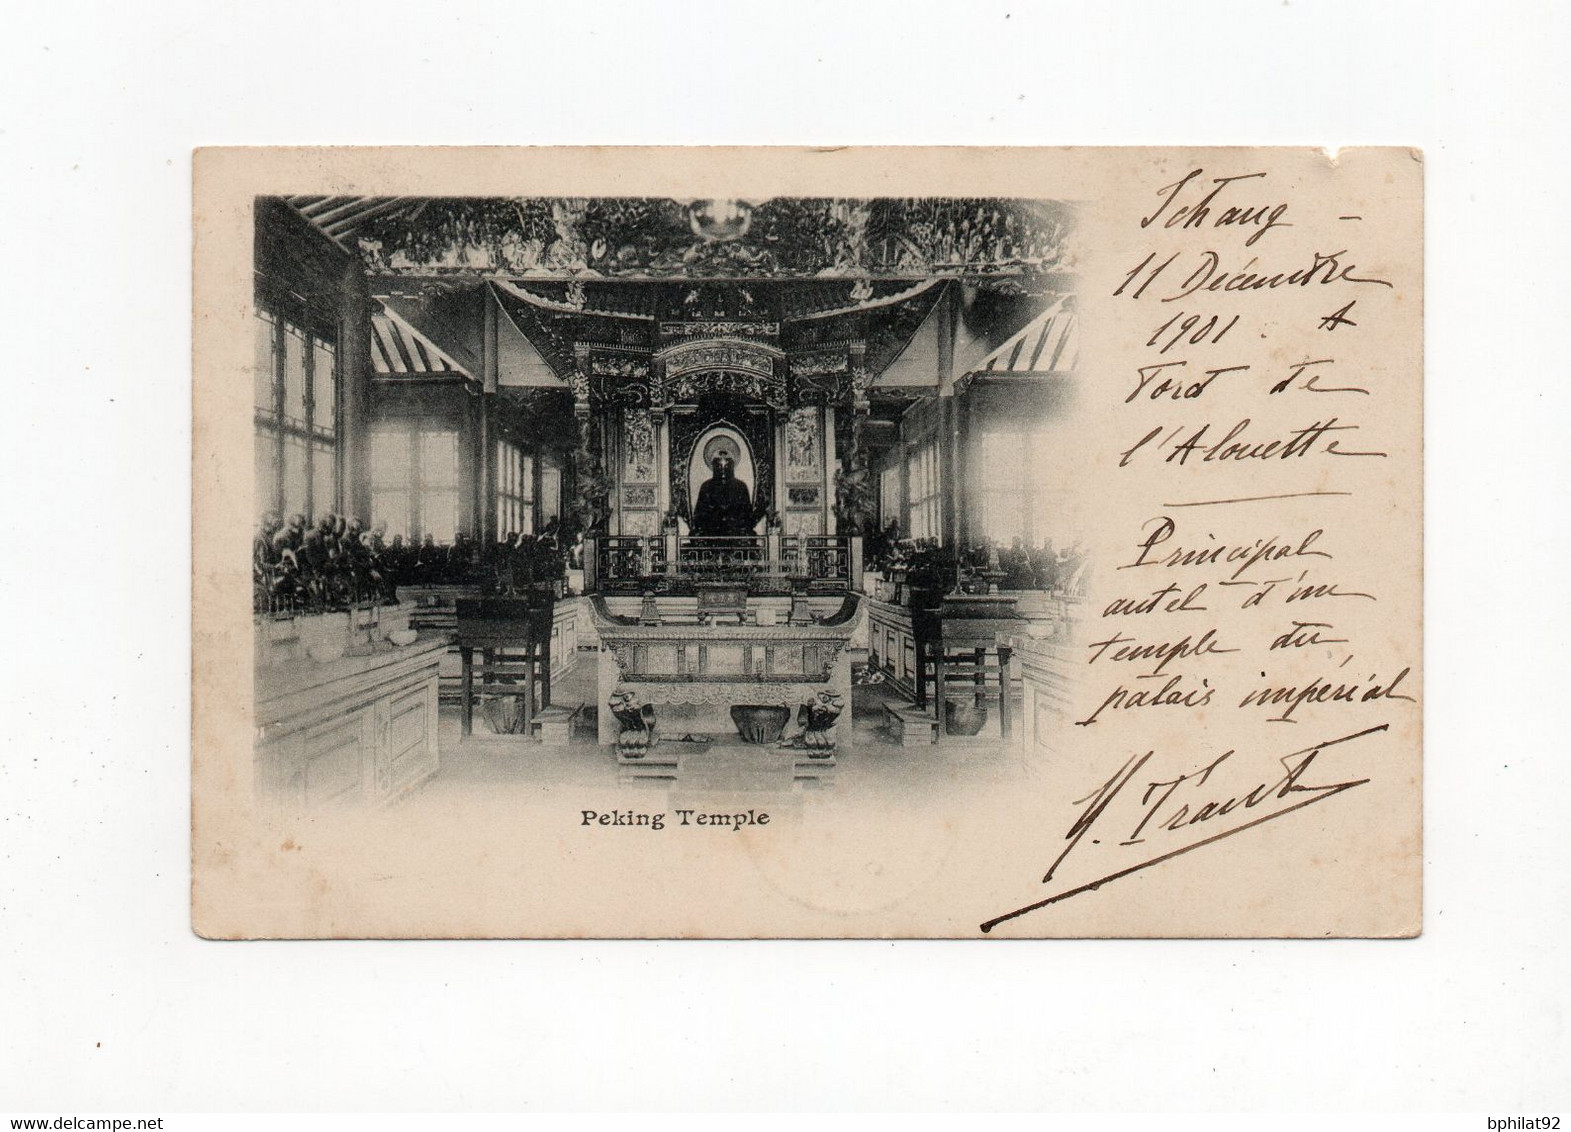 Ichang -
11 Décembre
1901. A
bord de
l'Alouette
Principal
autel d'un
temple du
palais impérial
Peking Temple
delcampe.net
bphilat92